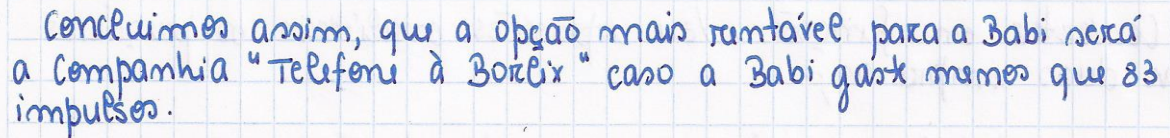 Concluimos assim, que a opção mais rentável para a Babi será
a Companhia "Telefone à Borlix" caso a Babi gaste menos que 83
impulsos.